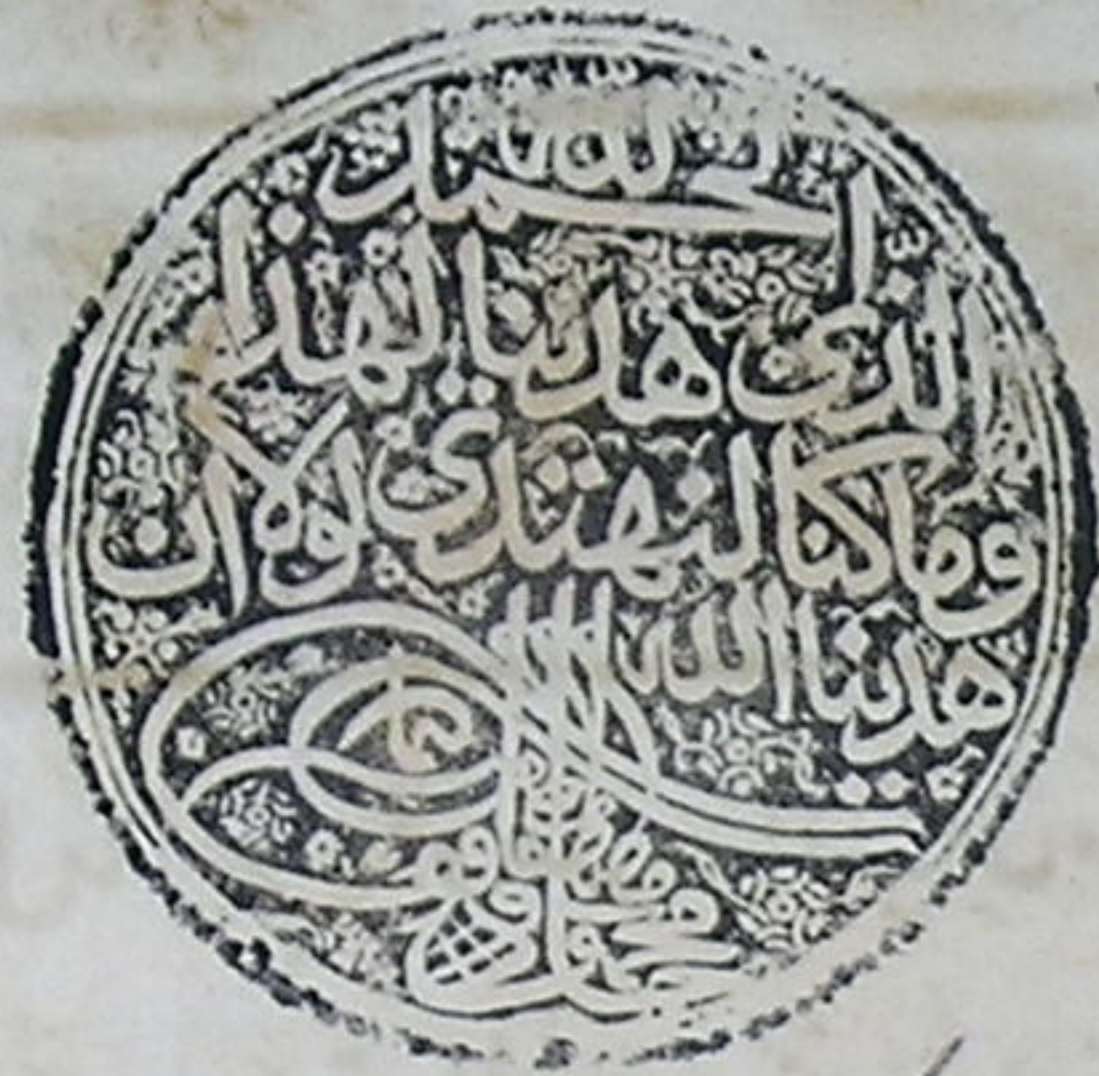 الحمد لله
الذى هدينا لهذا
وما كنا لنهتدي لولا ان
هدينا الله
محمود